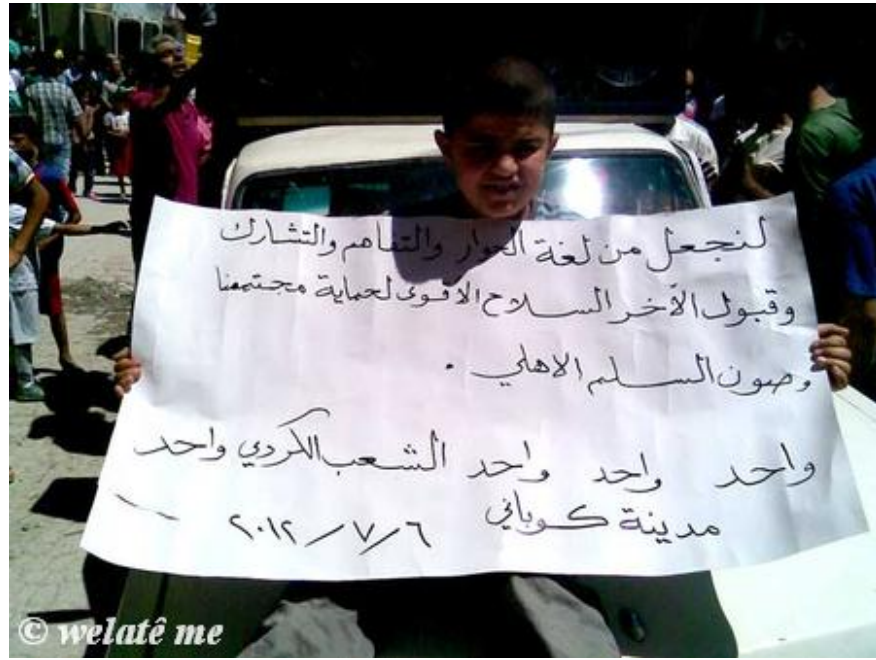 لنجعل من لغة الحوار والتفاهم والتشارك
وقبول الآخر السلاح الأقوى لحماية مجتمعنا
وصون السلم الاهلي .
واحد واحد واحد الشعب الكردي واحد
مدينة كوباني ٦/٧/٢٠١٢
© welatê me